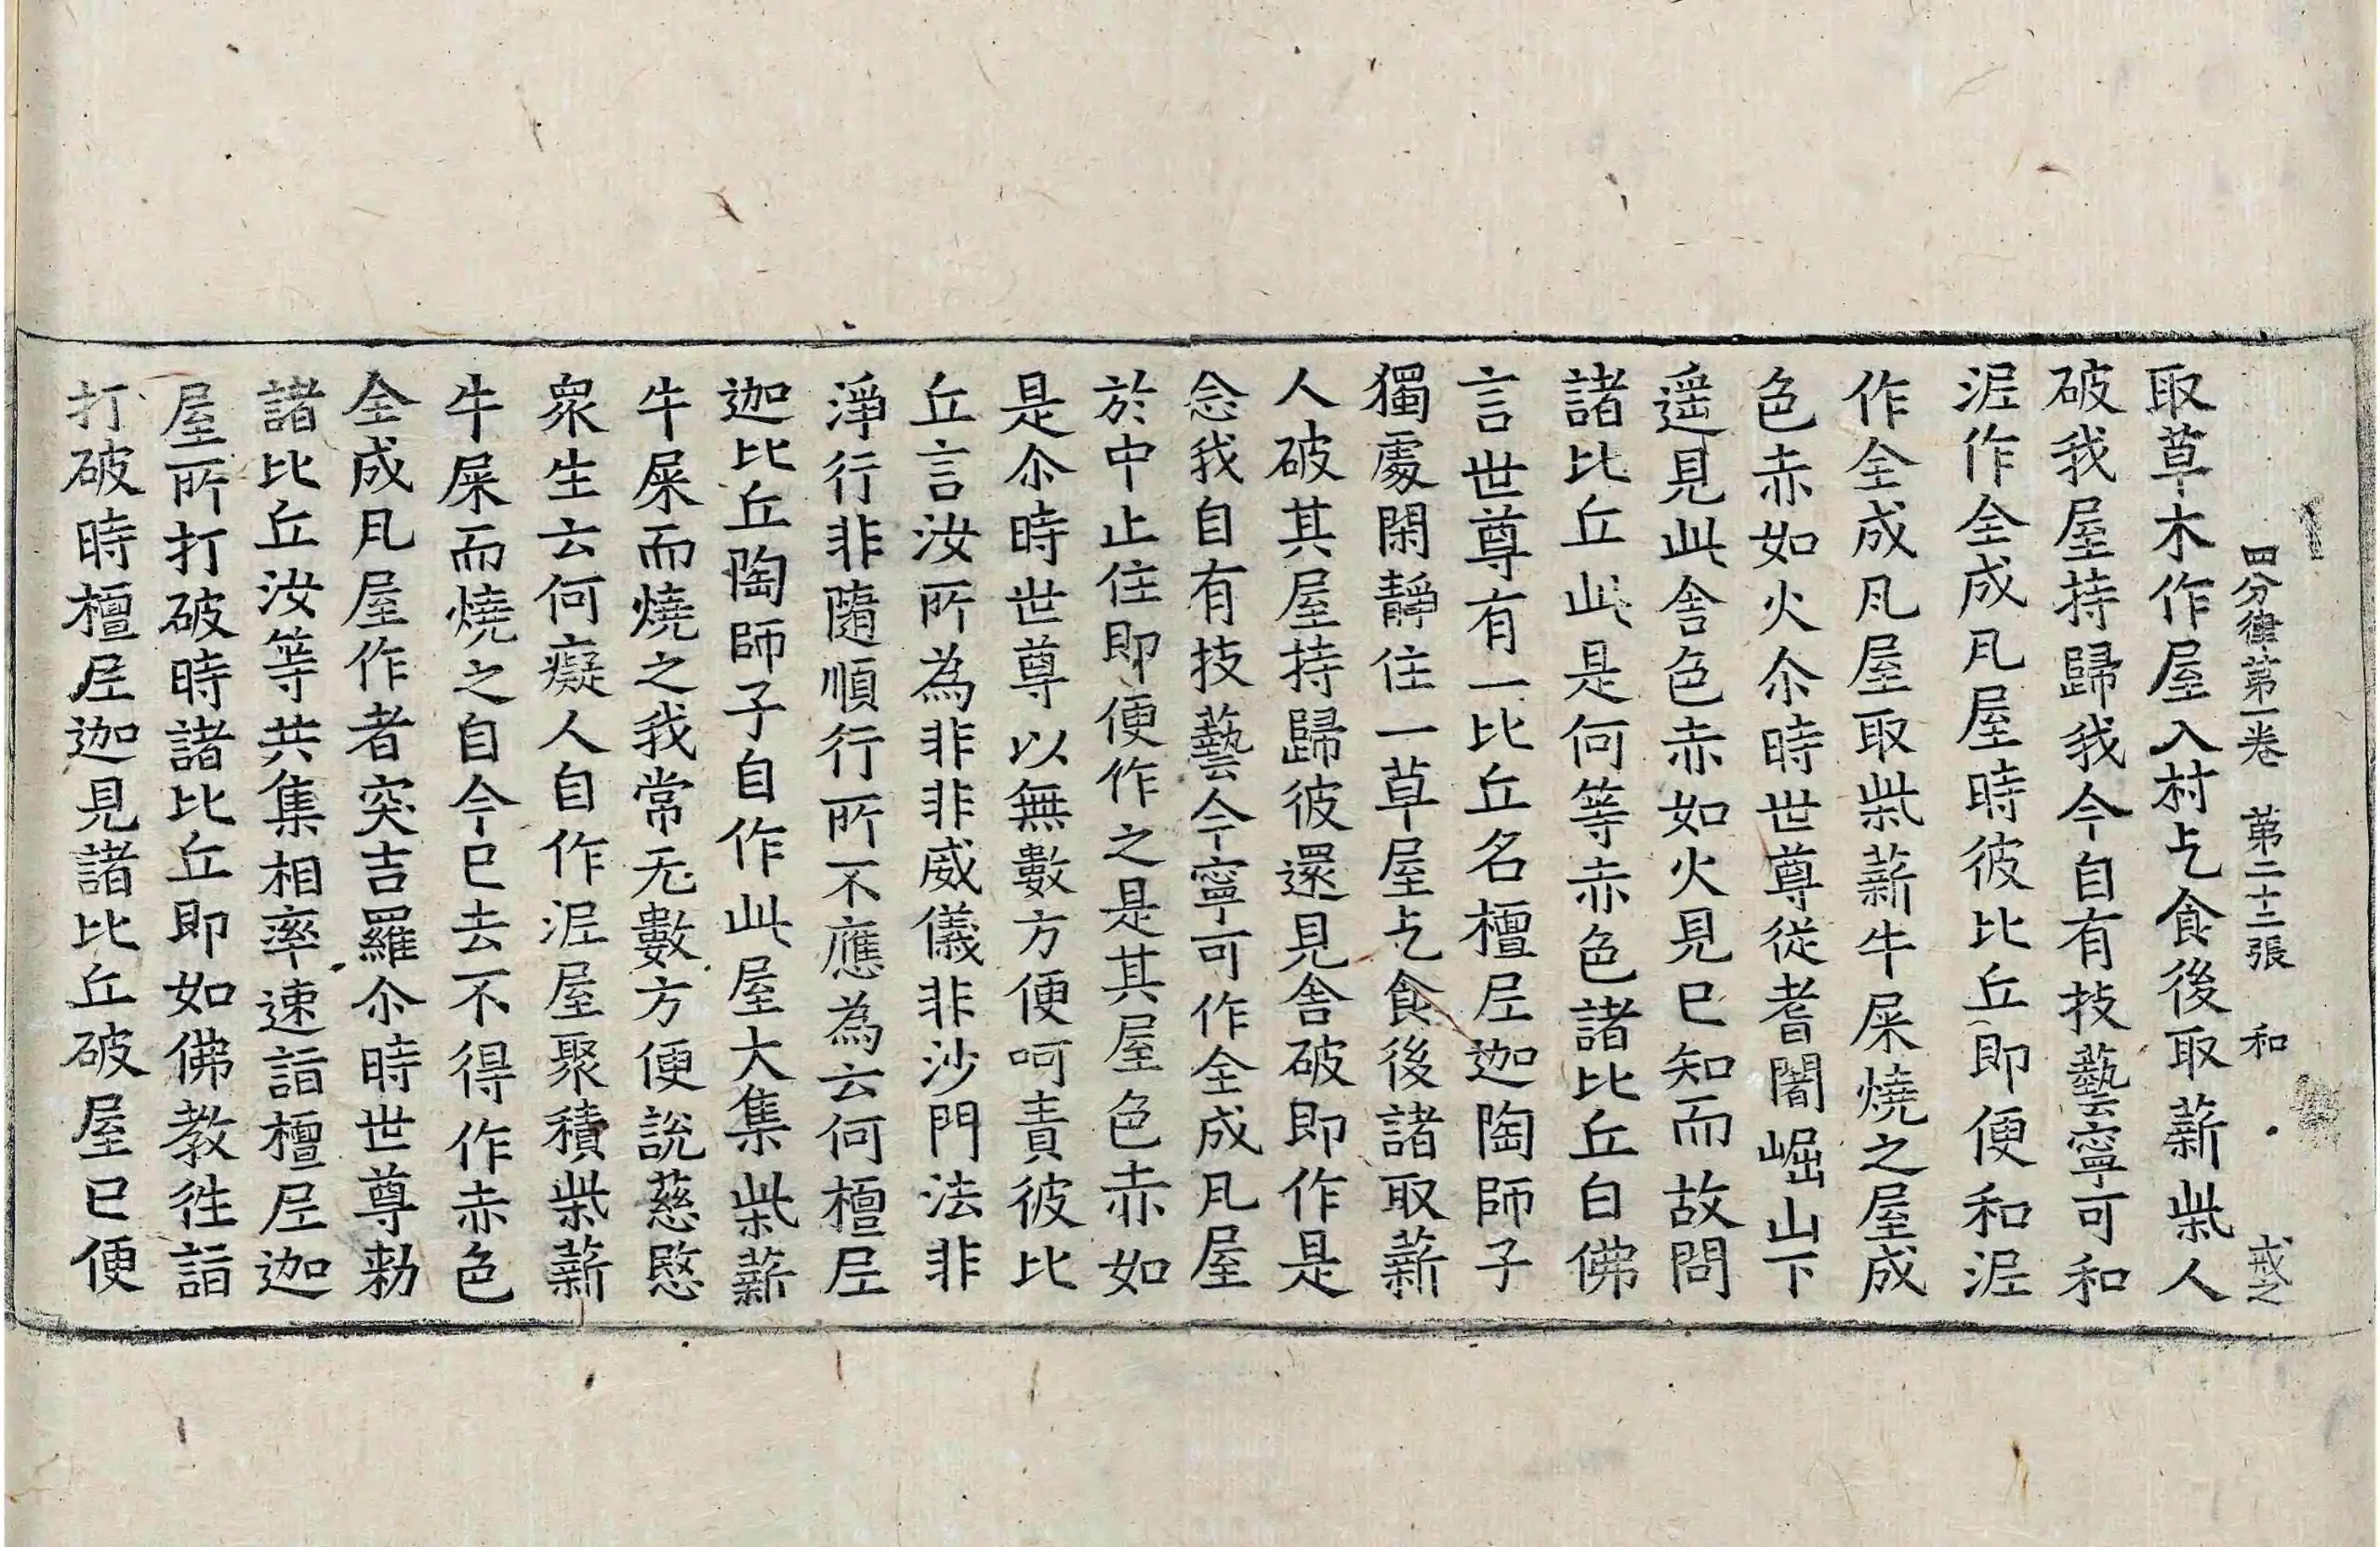 四分律第一卷　第二十二張　和　戒之
取草木作屋入村乞食後取薪柴人
破我屋持歸我今自有技藝寧可和
泥作全成凡屋時彼比丘即便和泥
作全成凡屋取柴薪牛屎燒之屋成
色赤如火尒時世尊從耆闍崛山下
遥見此舍色赤如火見已知而故問
諸比丘此是何等赤色諸比丘白佛
言世尊有一比丘名檀尼迦陶師子
獨處閑靜住一草屋乞食後諸取薪
人破其屋持歸彼還見舍破即作是
念我自有技藝今寧可作全成凡屋
於中止住即便作之是其屋色赤如
是尒時世尊以無數方便呵責彼比
丘言汝所為非非威儀非沙門法非
淨行非隨順行所不應為云何檀尼
迦比丘陶師子自作此屋大集柴薪
牛屎而燒之我常无數方便說慈愍
衆生云何癡人自作泥屋聚積柴薪
牛屎而燒之自今已去不得作赤色
全成凡屋作者突吉羅尒時世尊勑
諸比丘汝等共集相率速詣檀尼迦
屋所打破時諸比丘即如佛教往詣
打破時檀尼迦見諸比丘破屋已便